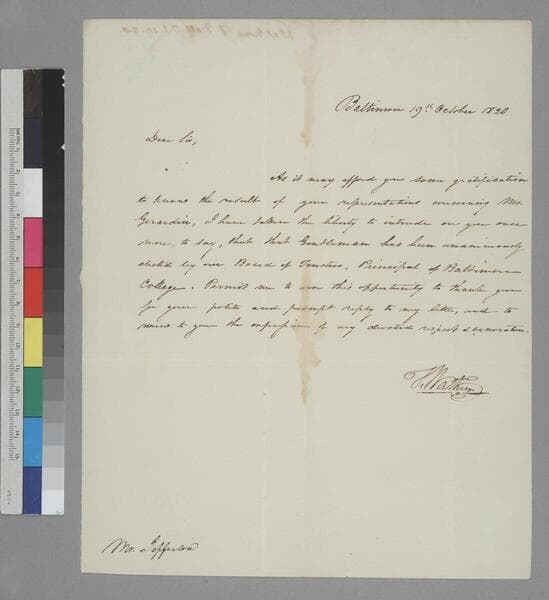 Baltimore 19th October 1820
Dear Sir,
As it may afford you some gratification
to know the result of your representations concerning Mr.
Girardin, I have taken the liberty to intrude on you once
more, to say, that that Gentleman has been unanimously
elected by our Board of Trustees, Principal of Baltimore
College. Permit me to use this opportunity to thank you
for your polite and prompt reply to my letter, and to
renew to you the expression of my devoted respect & veneration.
T. Watkins
Mr. Jefferson